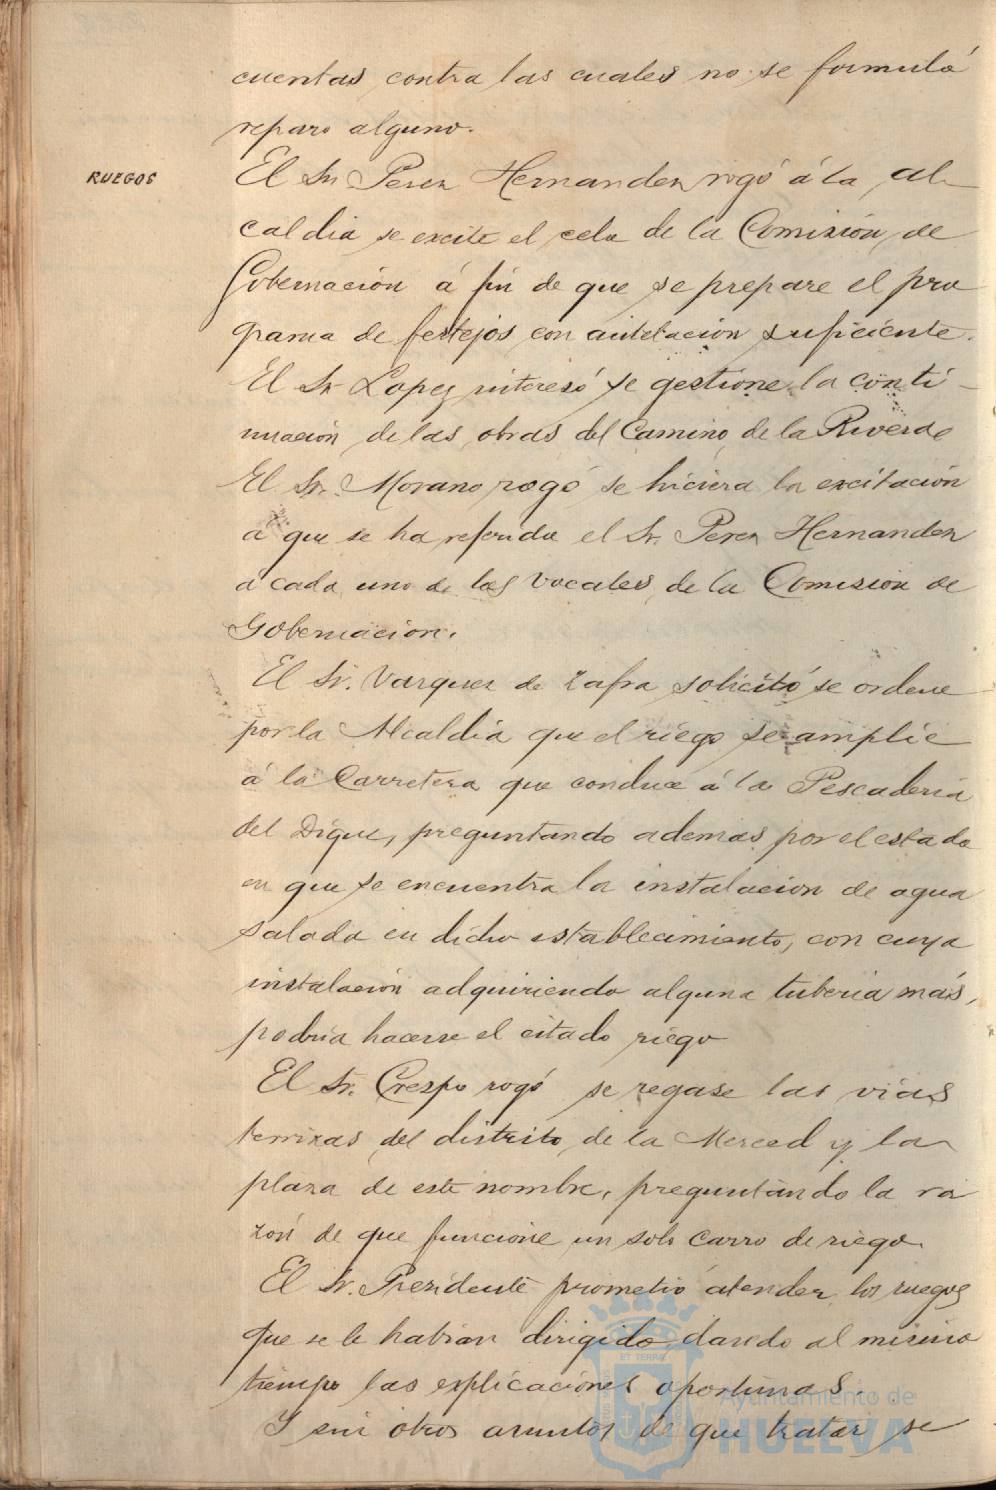 cuentas contra las cuales no se formuló
reparo alguno.
RUEGOS
El Sr. Perez Hernandez rogó á la Al-
caldia se excite el celo de la Comisión de
Gobernación á fin de que se prepare el pro
grama de festejos con antelación suficiente.
El Sr Lopez interesó se gestione la conti-
nuación de las obras del Camino de la Rivera de
El Sr. Morano rogó se hiciera la excitación
a que se ha referido el Sr. Perez Hernandez
a cada uno de los Vocales de la Comision de
Gobernacion.
El Sr. Vazquez de Zafra solicitó se ordene
por la Alcaldia que el riego se amplie
á la Carretera que conduce á la Pescaderia
del Dique, preguntando ademas por el estado
en que se encuentra la instalacion de agua
salada en dicho establecimiento, con cuya
instalación adquiriendo alguna tuberia más,
podria hacerse el citado riego
El Sr. Crespo rogó se regase las vias
terrizas del distrito de la Merced y la
plaza de este nombre, preguntando la ra
zón de que funcione un solo carro de riego.
El Sr. Presidente prometió atender los ruegos
que se le habian dirigido dando al mismo
tiempo las explicaciones oportunas.
Y sin otros asuntos de que tratar se
ET TERRÆ
Ayuntamiento de
HUELVA